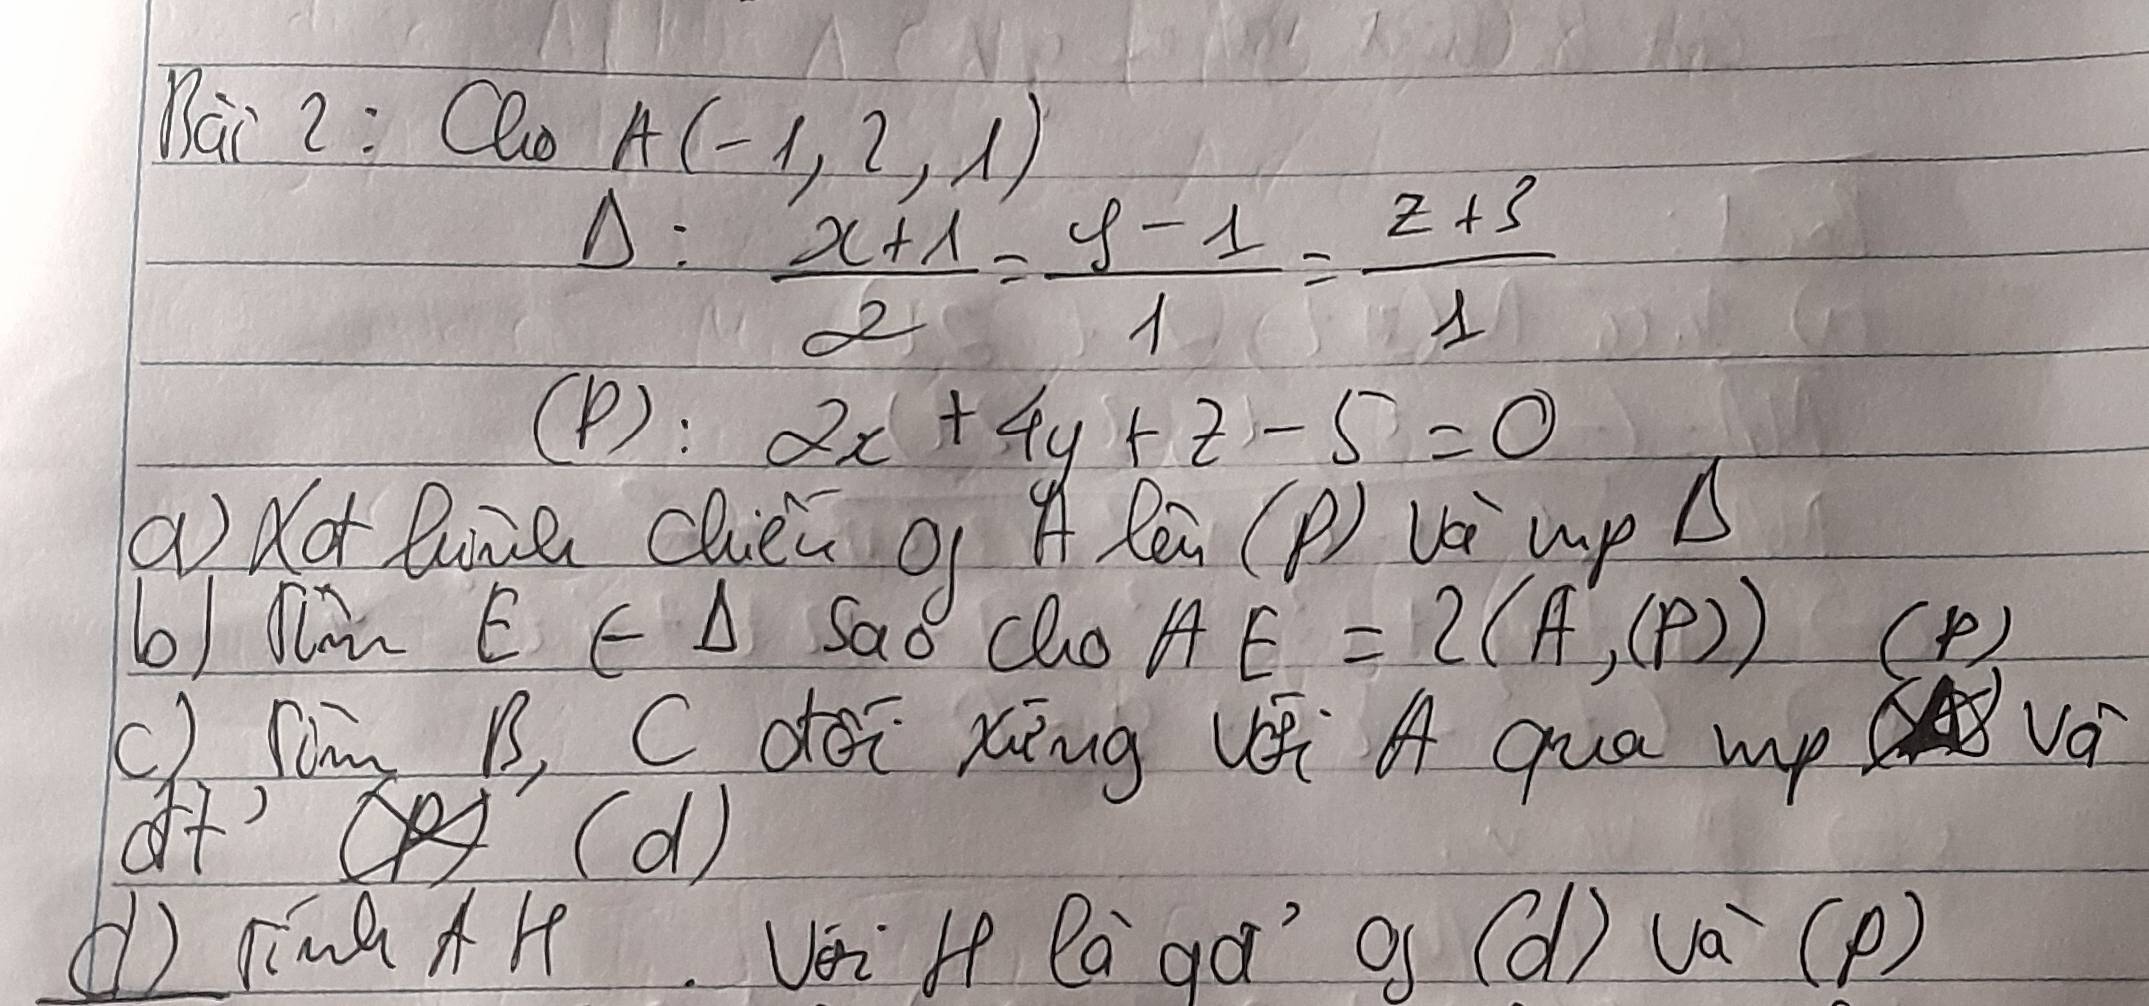 Bài 2: Cho A(-1, 2, 1)
Δ: x+1/2 = y-1/1 = z+3/1
(P): 2x + 4y + z - 5 = 0
a) Xđ hình chiếu of A lên (P) và mp Δ
b) Tìm E ∈ Δ sao cho AE = 2(A,(P)) (P)
c) Tìm B, C đối xứng với A qua mp và
đt' (d)
d) Tính AH. Với H là gđ' of (d) và (P)